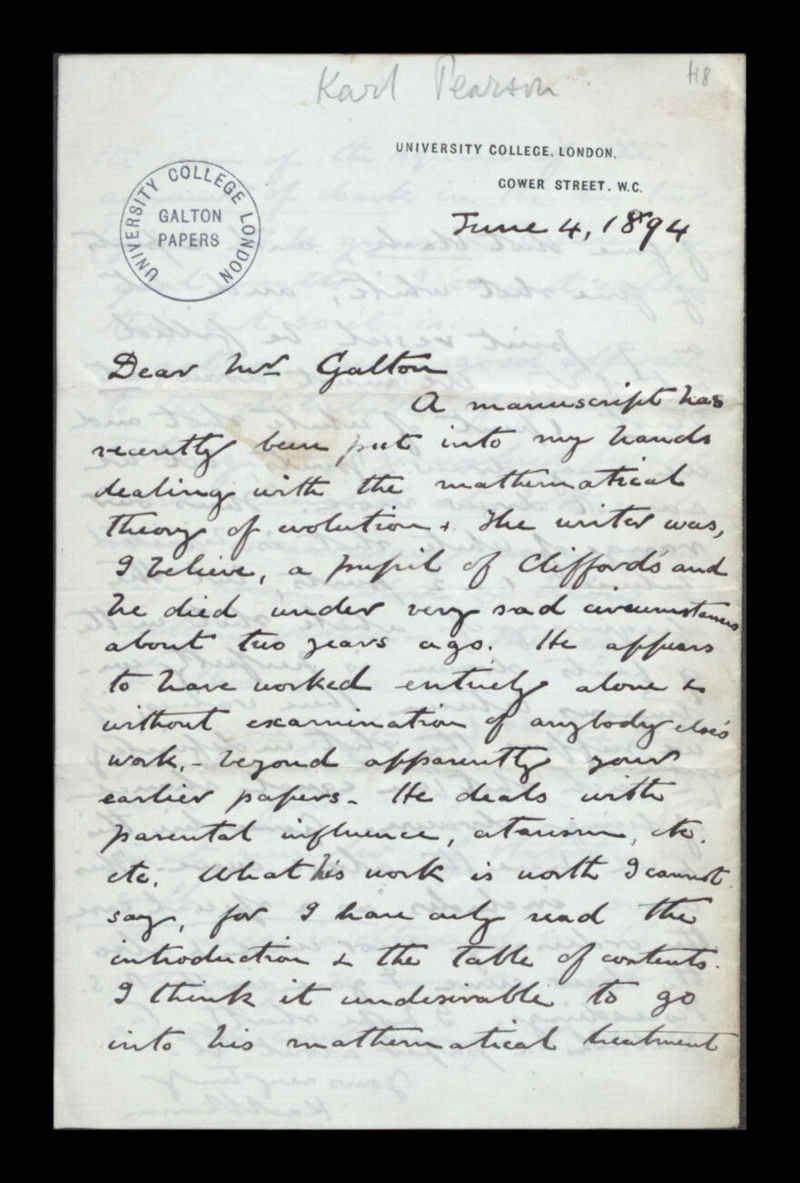 Karl Pearson
H8
UNIVERSITY COLLEGE, LONDON.
GOWER STREET. W.C.
UNIVERSITY COLLEGE LONDON
GALTON
PAPERS
June 4, 1894
Dear Mr Galton
A manuscript has
recently been put into my hands
dealing with the mathematical
theory of evolution. The writer was,
I believe, a pupil of Clifford's and
he died under very sad circumstances
about two years ago. He appears
to have worked entirely alone &
without examination of anybody else's
work, - beyond apparently your
earlier papers. He deals with
parental influence, atavism, etc.
etc. What his work is worth I cannot
say, for I have only read the
introduction & the table of contents.
I think it undesirable to go
into his mathematical treatment